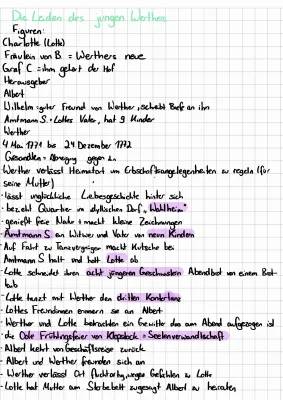 Die Leiden des jungen Werthers
Figuren:
Charlotte (Lotte)
Fräulein von B = Werthers neue
Graf C = ihm gehört der Hof
Herausgeber
Albert
Wilhelm: guter Freund von Werther, schreibt Briefe an ihn
Amtmann S. = Lottes Vater, hat 9 Kinder
Werther
4 Mai 1771 bis 24 Dezember 1772
Gesandten = Abneigung gegen ihn
Werther verlässt Heimatort um Erbschaftsangelegenheiten zu regeln (für
seine Mutter)
- lässt unglückliche Liebesgeschichte hinter sich
- bezieht Quartier im idyllischen Dorf „Wahlheim"
- genießt freie Natur & macht kleine Zeichnungen
- Amtmann S. ein Witwer und Vater von neun Kindern
- Auf Fahrt zu Tanzvergnügen macht Kutsche bei
Amtmann S halt und holt Lotte ab
- Lotte schneidet ihren acht jüngeren Geschwistern Abendbrot von einem Brot-
laib
- Lotte tanzt mit Werther den dritten Kontertanz
- Lottes Freundinnen erinnern sie an Albert
- Werther und Lotte betrachten ein Gewitter das am Abend aufgezogen ist
- die Ode Frühlingsfeier von Klopstock = Seelenverwandtschaft
- Albert kehrt von Geschäftsreise zurück
- Albert und Werther freunden sich an
- Werther verlässt Ort fluchtartig wegen Gefühlen zu Lotte
- Lotte hat Mutter am Sterbebett zugesagt Albert zu heiraten